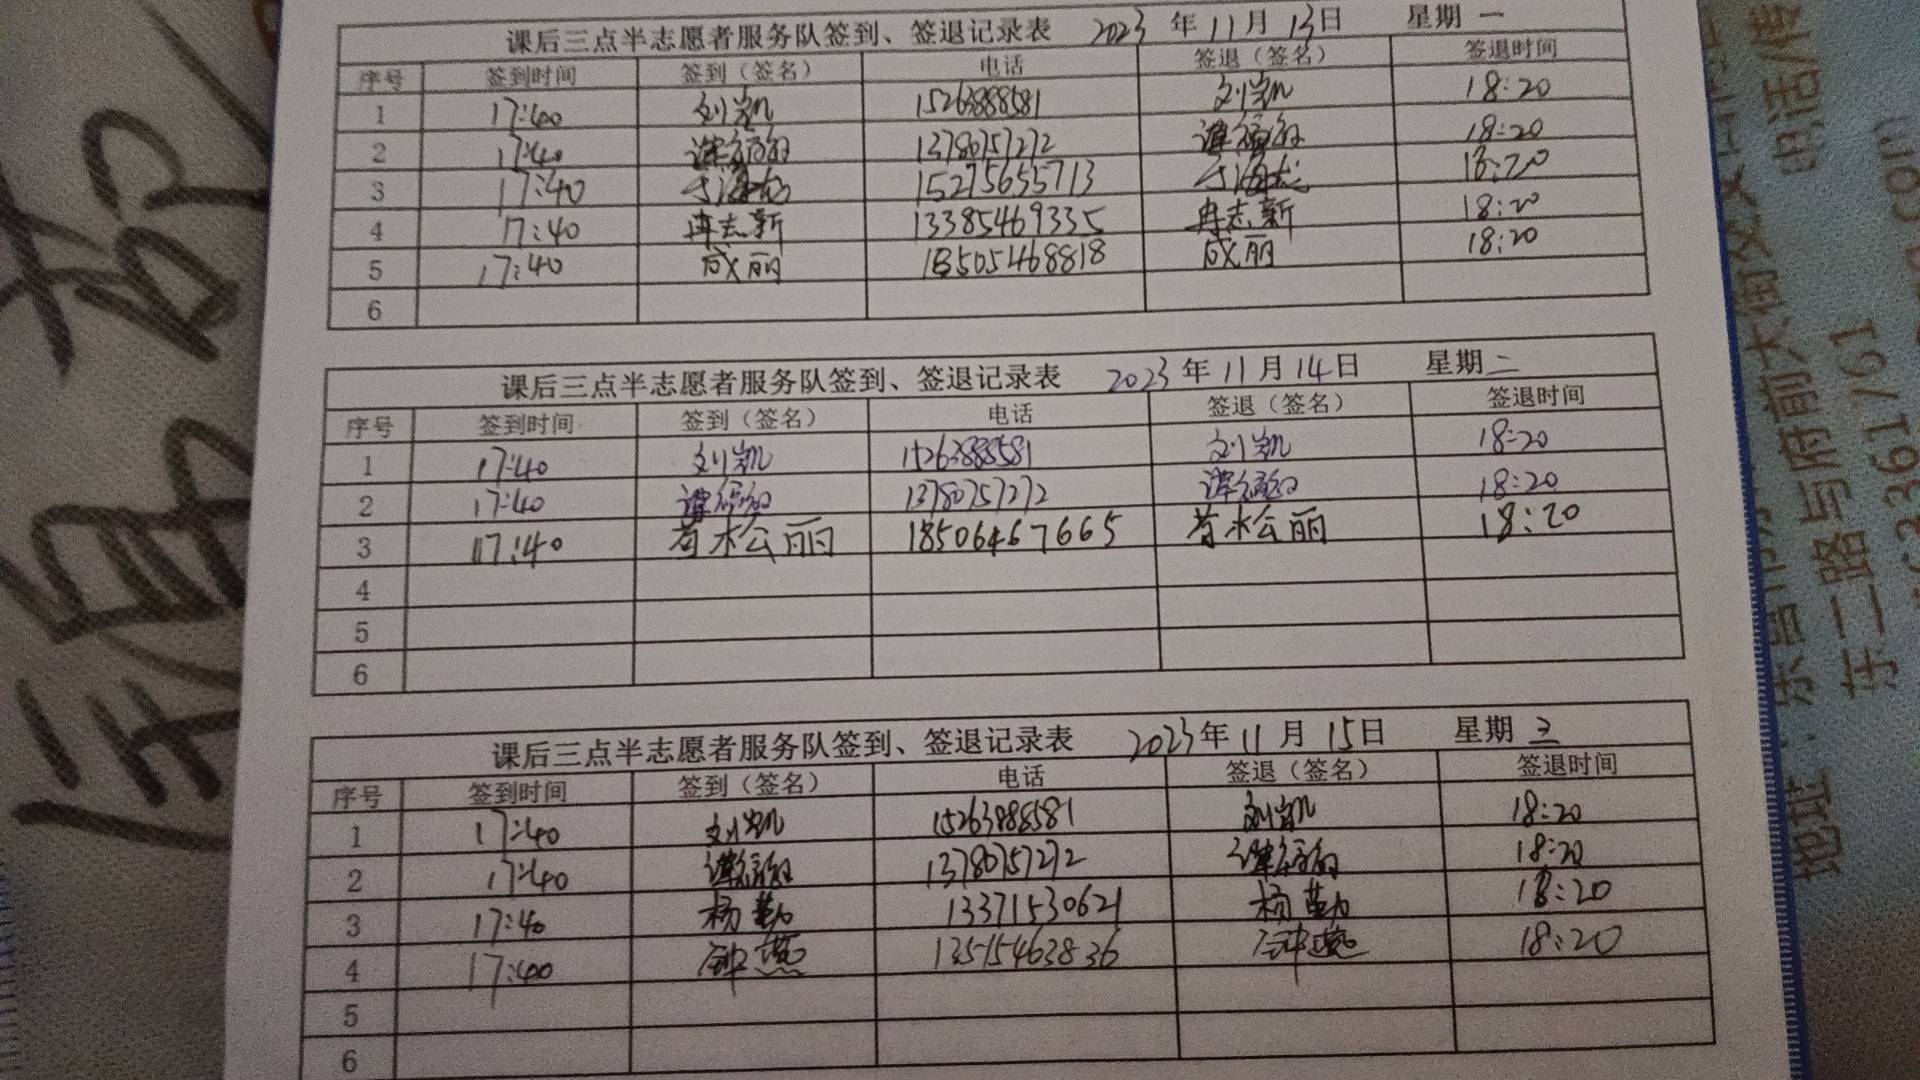 课后三点半志愿者服务队签到、签退记录表 2023 年 11 月 13 日 星期 一
序号 签到时间 签到（签名） 电话 签退（签名） 签退时间
1 17:40 刘凯 15263888581 刘凯 18:20
2 17:40 13780757272 18:20
3 17:40 于海龙 15275655713 于海龙 18:20
4 17:40 冉志新 13385469335 冉志新 18:20
5 17:40 成丽 18505468818 成丽 18:20
6
课后三点半志愿者服务队签到、签退记录表 2023 年 11 月 14 日 星期 二
序号 签到时间 签到（签名） 电话 签退（签名） 签退时间
1 17:40 刘凯 15263888581 刘凯 18:20
2 17:40 13780757272 18:20
3 17:40 苟松丽 18506467665 苟松丽 18:20
4
5
6
课后三点半志愿者服务队签到、签退记录表 2023 年 11 月 15 日 星期 三
序号 签到时间 签到（签名） 电话 签退（签名） 签退时间
1 17:40 刘凯 15263888581 刘凯 18:20
2 17:40 13780757272 18:20
3 17:40 杨勤 13371530621 杨勤 18:20
4 17:40 钟燕 13515463836 钟燕 18:20
5
6
电话/传
东二路与府前大街交